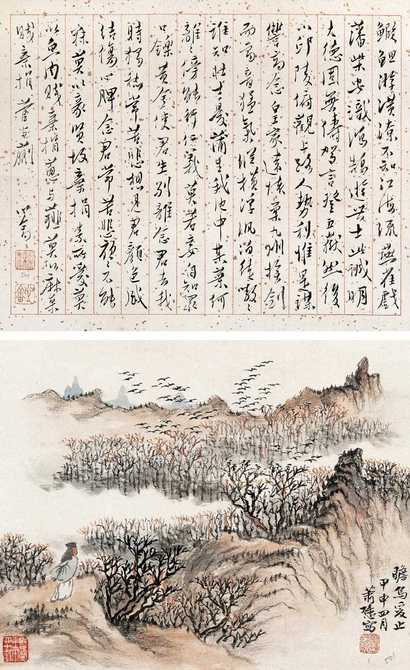 鰕䱇游潢潦不知江海流燕雀戲
藩柴安識鴻鵠遊世士此誠明
大德固無儔駕言登五嶽然後
小邱陵俯觀上路人勢利惟是謀
讎高念皇家遠懷柔九州撫劍
而雷音猛氣縱橫浮汎泊徒嗷嗷
誰知壯士憂蒲生我池中其葉何
離離傍能行仁義莫若妾自知眾
口鑠黃金使君生別離念君去我
時獨愁常苦悲想見君顏色感
結傷心脾念君常苦悲夜夜不能
寐莫以豪賢故棄捐素所愛莫
以魚肉賤棄捐蔥與薤莫以麻枲
賤棄捐菅與蒯
瞻烏爰止
甲申四月
蕭愻寫